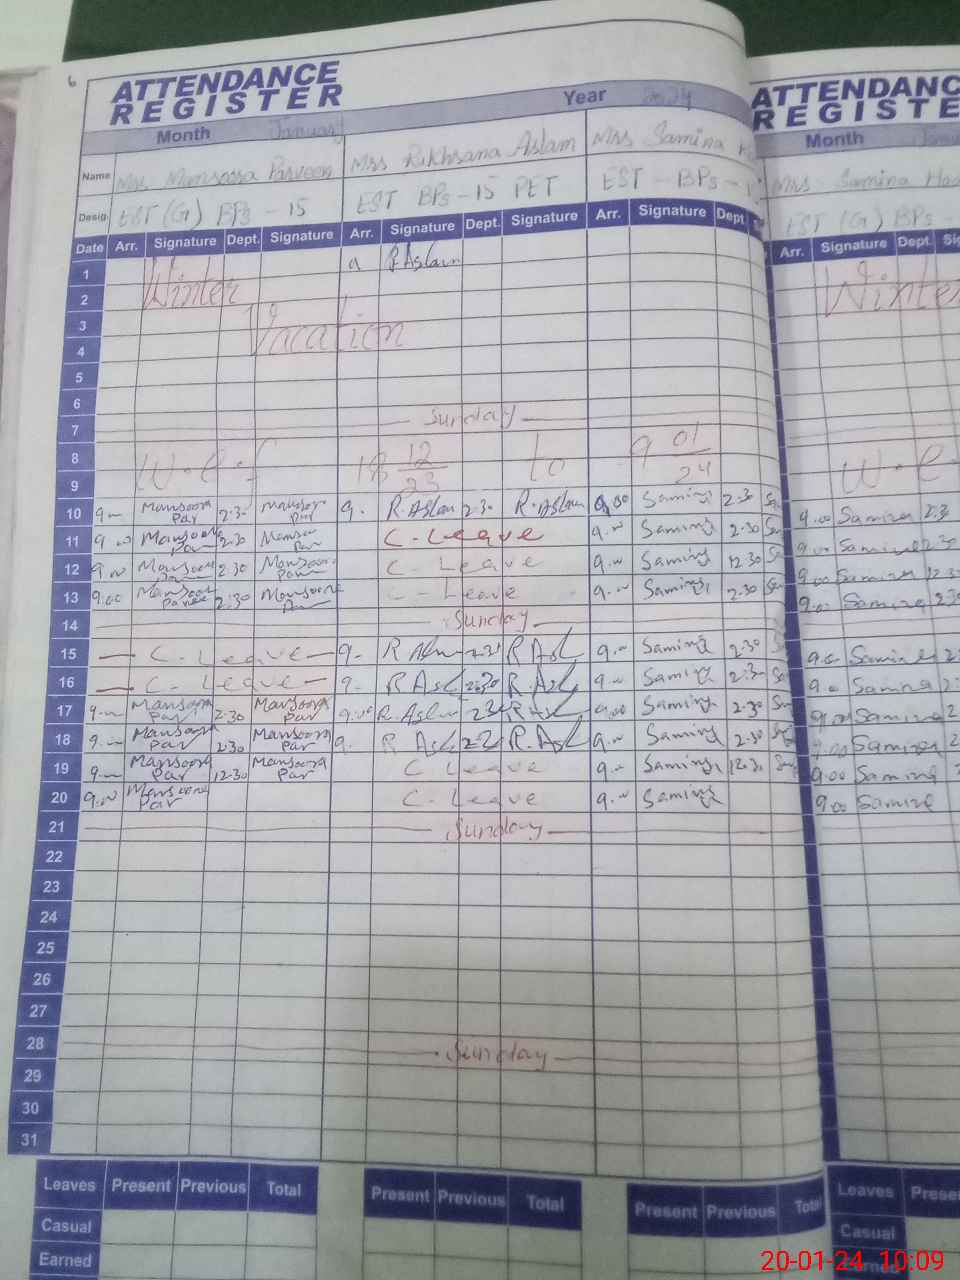 6
ATTENDANCE REGISTER
ATTENDANC
REGISTE
Month January Year 2024
Month
Name Mrs Mansoora Parveen Mrs Rukhsana Aslam Mrs Samina
Mrs Samina
Desig. EST (G) BPS - 15 EST BPS - 15 PET EST - BPS -
EST (G) BPS
Date Arr. Signature Dept. Signature Arr. Signature Dept. Signature Arr. Signature Dept.
Arr. Signature Dept.
1 9 R.Aslam
2 Winter
Winter
3
4 Vacation
5
6
7 Sunday
8 W.e.f 18 12/23 to 9 01/24
W.e.
9
10 9.00 Mansoora Par 2.30 Mansoora Par 9. R.Aslam 2.30 R.Aslam 9.00 Samina 2.30
9.00 Samina 2.3
11 9.00 Mansoora Par 2.30 Mansoora Par C-Leave 9.00 Samina 2.30
9.00 Samina 2.30
12 9.00 Mansoora 2.30 Mansoora C-Leave 9.00 Samina 12.30
9.00 Samina 12.3
13 9.00 Mansoora 2:30 Mansoora C-Leave 9.00 Samina 2.30
9.00 Samina 2.30
14 Sunday
15 C-Leave 9. R Asl 9.00 Samina 2.30
Samina 2
16 C-Leave 9. R Asl 2.30 R.Asl 9.00 Samina 2.3
9.0 Samina 2
17 9.00 Mansoora Par 2.30 Mansoora Par 9.00 R.Aslam 2.30 R Asl 9.00 Samina 2.30
9.00 Samina 2
18 9.00 Mansoora Par 2.30 Mansoora Par 9. R Asl R.Asl 9.00 Samina 2.30
9.00 Samina 2
19 9.00 Mansoora Par 12.30 Mansoora Par C-Leave 9.00 Samina 12.30
9.00 Samina
20 9.00 Mansoora Par C-Leave 9.00 Samina
9.00 Samina
21 Sunday
22
23
24
25
26
27
28 Sunday
29
30
31
Leaves Present Previous Total Present Previous Total Present Previous Total
Leaves Prese
Casual
Casual
Earned
20-01-24 10:09